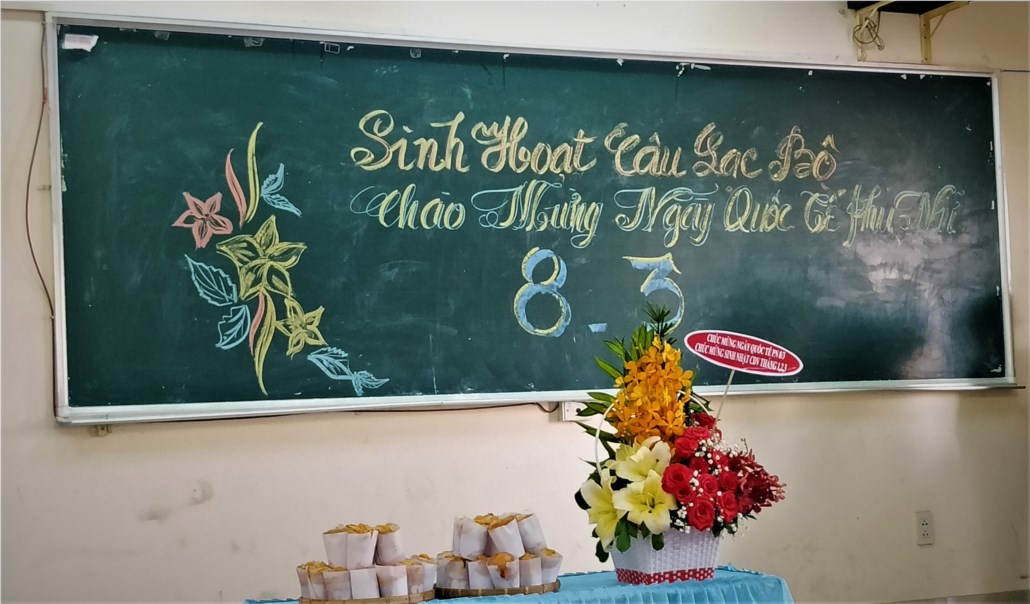 Sinh Hoạt Câu Lạc Bộ
Chào Mừng Ngày Quốc Tế Phụ Nữ
8_3
CHÚC MỪNG NGÀY QUỐC TẾ PN 8/3
CHÚC MỪNG SINH NHẬT CĐV THÁNG 1,2,3